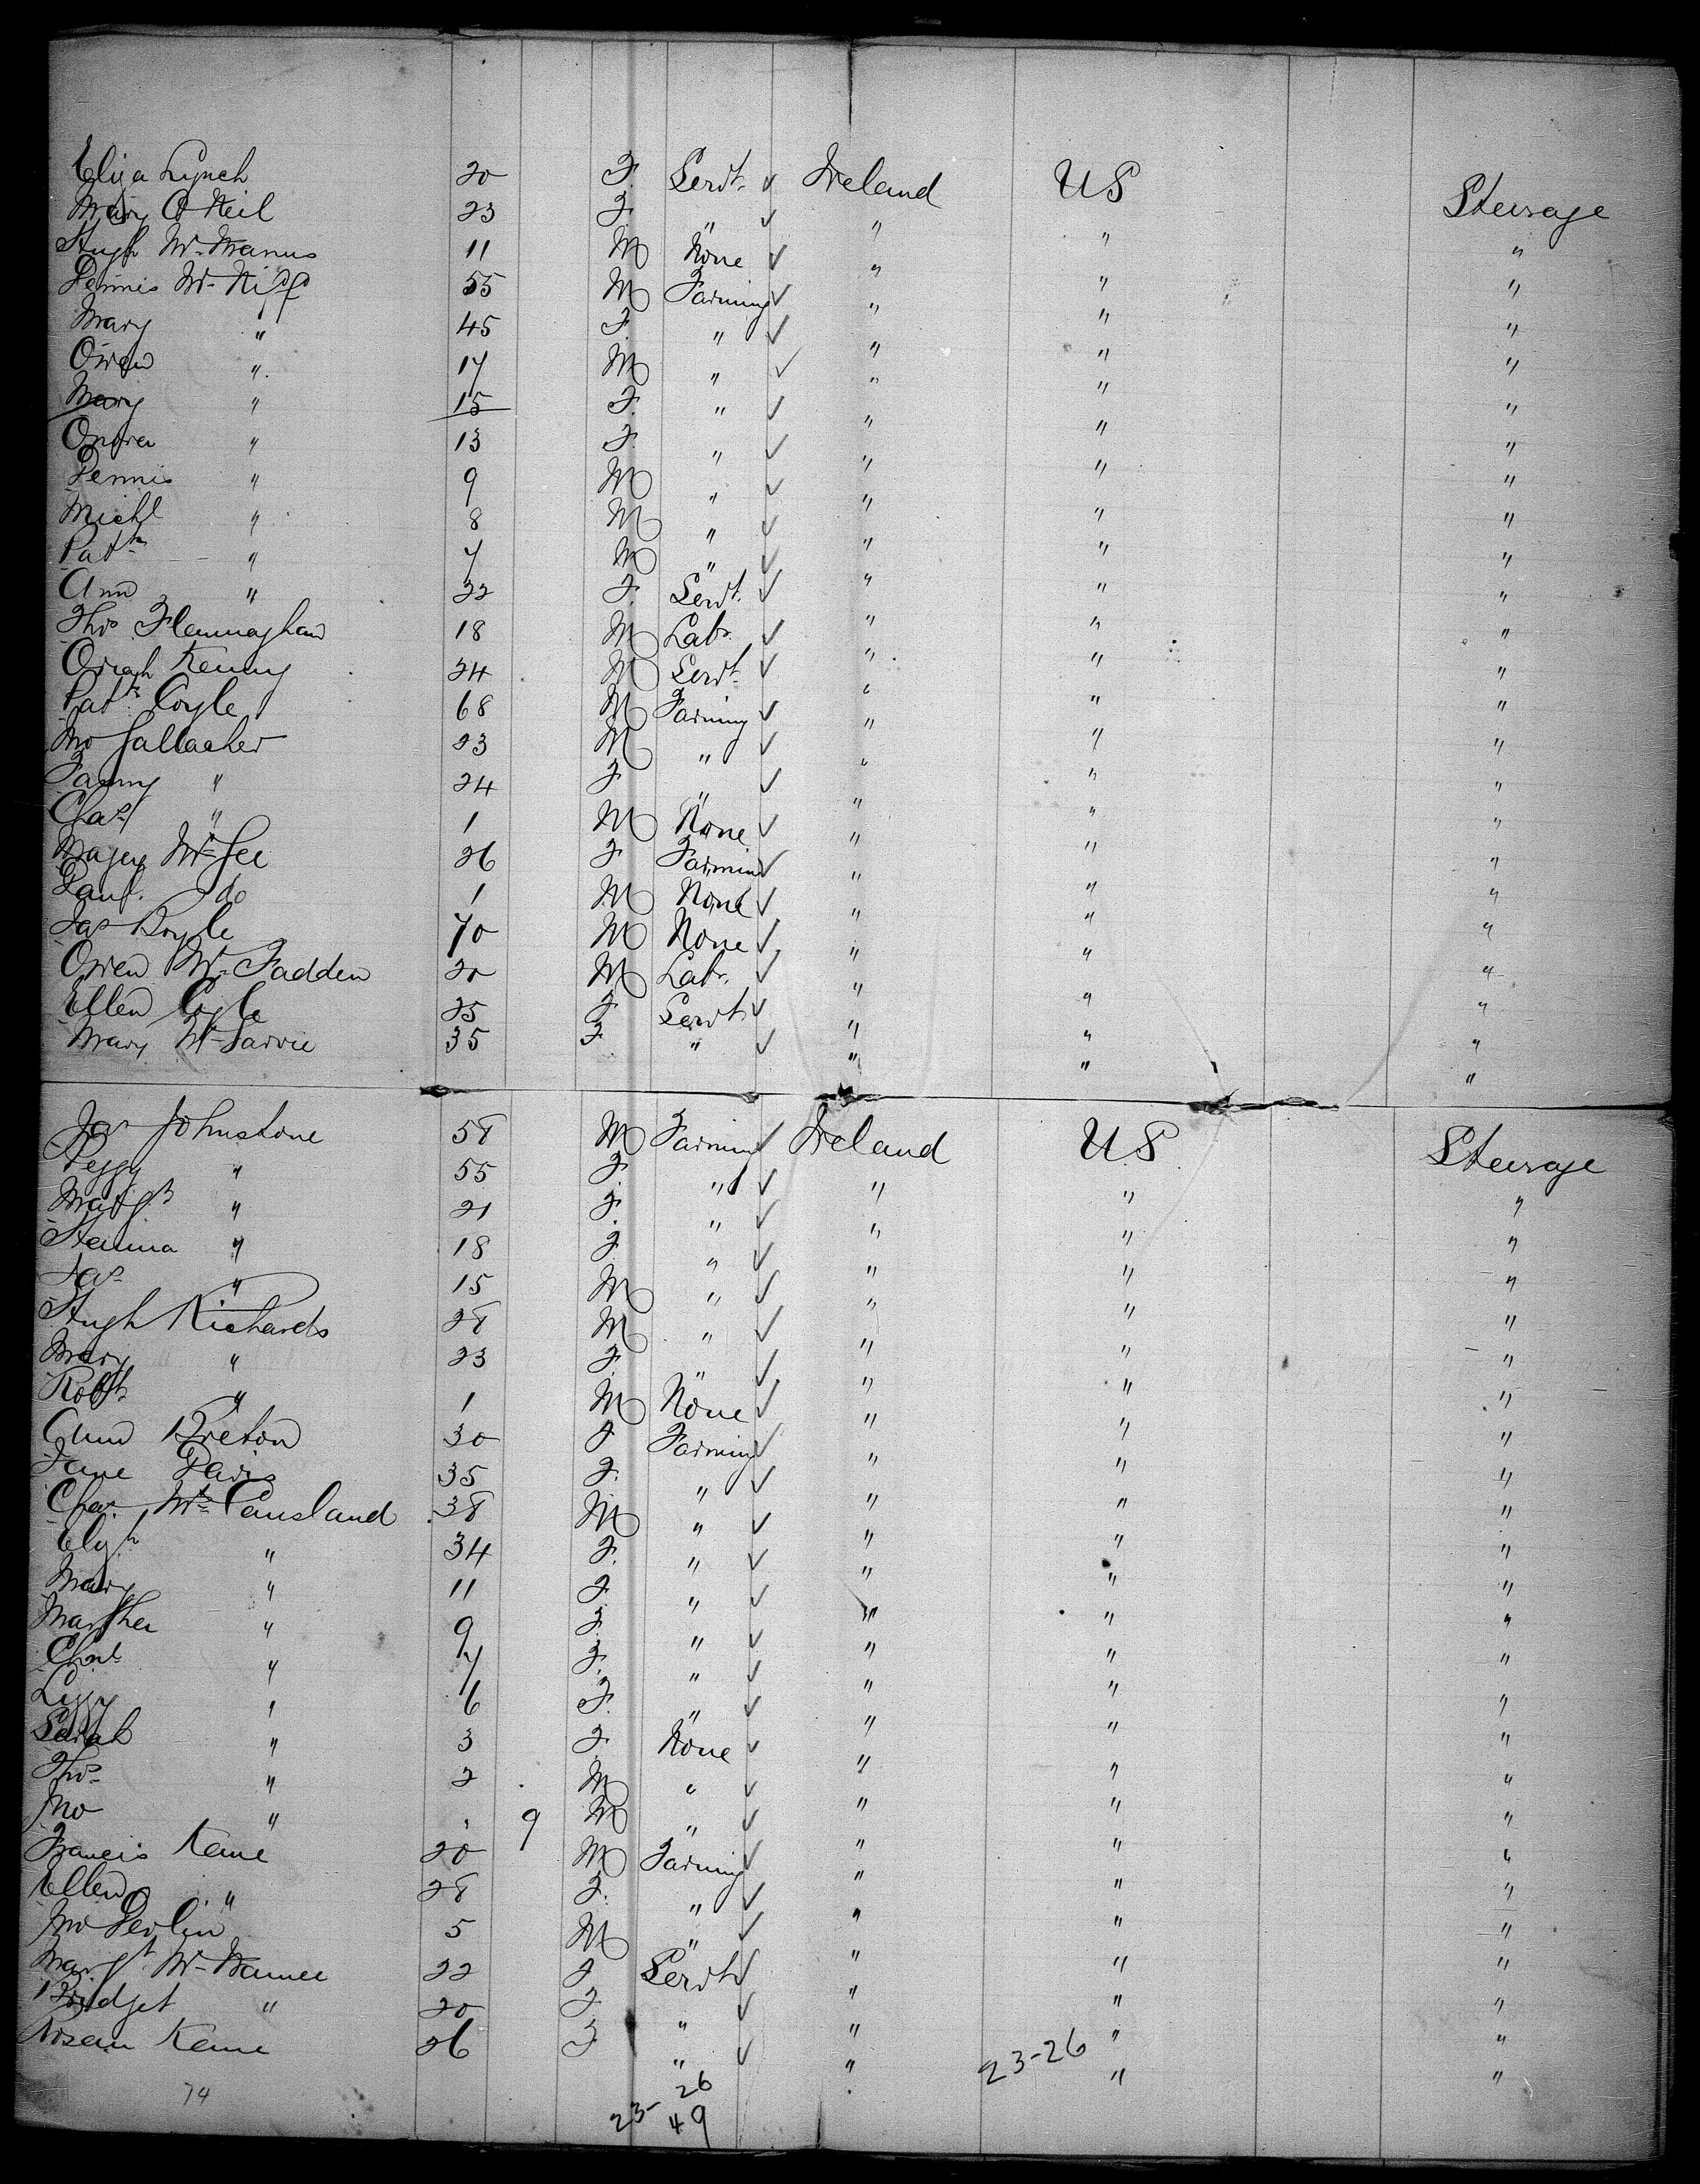 Eliza Lynch 20 F. Servt. ✓ Ireland US Steerage
Mary O Neil 23 F " ✓ " " "
Hugh Mc Manus 11 M None ✓ " " "
Dennis Mc 55 M Farming ✓ " " "
Mary " 45 F " ✓ " " "
Owen " 17 M " ✓ " " "
Mary " 15 F. " ✓ " " "
Onora " 13 F. " ✓ " " "
Dennis " 9 M " ✓ " " "
Michl " 8 M " ✓ " " "
Patk " 7 M " ✓ " " "
Ann " 22 F. Servt. ✓ " " "
Thos Flannaghan 18 M Labr. ✓ " " "
Kenny 24 M Servt. ✓ " " "
Patk Coyle 68 M Farming ✓ " " "
Jno Gallacher 23 M " ✓ " " "
Fanny " 24 F " ✓ " " "
Chas " 1 M None ✓ " " "
Mc Gee 26 F Farming ✓ " " "
Danl. do 1 M None ✓ " " "
Jas Boyle 70 M None ✓ " " "
Owen Mc Fadden 20 M Labr. ✓ " " "
Ellen Coyle 25 F Servt ✓ " " "
Mary Mc Garvie 35 F " ✓ " " "
Jas Johnstone 58 M Farming ✓ Ireland US Steerage
Peggy " 55 F. " ✓ " " "
Margt " 21 F. " ✓ " " "
" 18 F. " ✓ " " "
Jas " 15 M " ✓ " " "
Hugh Richards 28 M " ✓ " " "
Mary " 23 F. " ✓ " " "
Robt " 1 M None ✓ " " "
Ann Breton 30 F Farming ✓ " " "
Jane Davis 35 F. " ✓ " " "
Chas Mc Causland 38 M " ✓ " " "
Elizth " 34 F. " ✓ " " "
Mary " 11 F. " ✓ " " "
Martha " 9 F. " ✓ " " "
" 7 F. " ✓ " " "
Lizzy " 6 F. " ✓ " " "
Sarah " 3 F. None ✓ " " "
Thos " 2 M " ✓ " " "
Jno " 9 M " ✓ " " "
Francis Kane 20 M Farming ✓ " " "
Ellen " 28 F. " ✓ " " "
Jno Devlin 5 M " ✓ " " "
Margt Mc Namee 22 F Servt ✓ " " "
Bridget " 20 F " ✓ " " "
Rosean Kane 26 F " ✓ " " "
23-26
74 26
23- 49